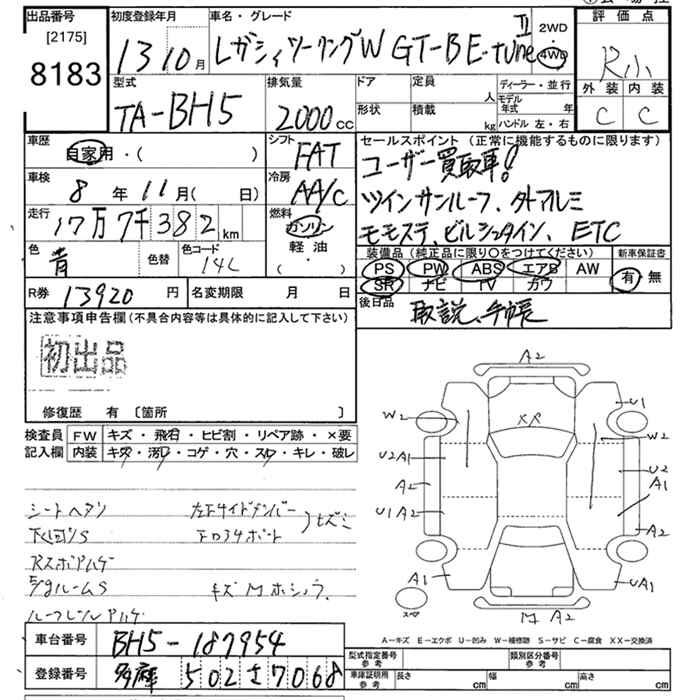 出品番号
[2175]
8183
初度登録年月
13 10月
車名・グレード
レガシィツーリングW GT-B E-tune II
2WD
・
4WD
評価点
R小
外装 内装
C C
型式
TA-BH5
排気量
2000cc
ドア
定員
人
形状
積載
kg
ディーラー・並行
モデル年式 年
ハンドル 左・右
車歴
自家用・( )
シフト
FAT
セールスポイント (正常に機能するものに限ります)
ユーザー買取車!
ツインサンルーフ、外アルミ
モモステ、ビルシュタイン、ETC
車検
8年11月( 日)
冷房
AA/C
走行
17万7千382km
燃料
ガソリン
軽油
( )
色
青
色替
色コード
14L
装備品 (純正品に限り○をつけてください)
PS PW ABS エアB AW
SR ナビ TV カワ
新車保証書
有・無
R券 13920円
名変期限 月 日
後日品
取説、手帳
注意事項申告欄(不具合内容等は具体的に記入して下さい)
初出品
修復歴 有 〔箇所 〕
検査員記入欄
FW キズ・飛石・ヒビ割・リペア跡・×要
内装 キズ・汚レ・コゲ・穴・スレ・キレ・破レ
シートヘタリ
下回りS
Rスポアハゲ
E/gルームS
ルーフレールアハゲ
左F サイドメンバー
キズM
A2
U1
W2
XP
W2
U2A1
U2
A1
A2
U1A2
A2
A1
UA1
スペア
M A2
A―キズ E―エクボ U―凹み W―補修跡 S―サビ C―腐食 XX―交換済
車台番号 BH5-187954
登録番号 多摩 502 さ 7068
型式指定番号
参考
類別区分番号
参考
車庫証明用
参考
長さ cm
幅 cm
高さ cm